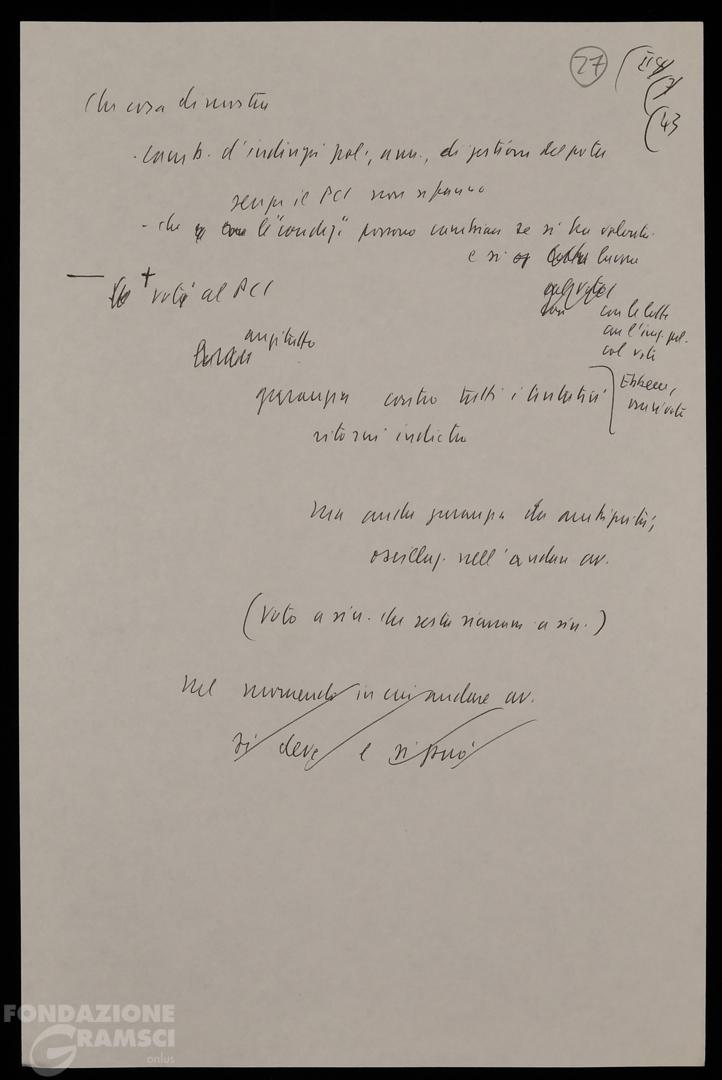 27
43
Che cosa dimostra
- camb. d'indirizzi pol., amm., di gestione del potere
senza il PCI non si fanno
- che le "condiz." possono cambiare se si ha volontà
e si lavora
+ voti al PCI
con le lotte
con l'iniz. pol.
col voto
anzitutto
garanzia contro tutti i tentativi
Ebbene,
ritorni indietro
ma anche garanzia da ambiguità,
oscillaz. nell'andare av.
(voto a sin. che resta sicuram. a sin.)
nel momento in cui andare av.
si deve e si può
FONDAZIONE
GRAMSCI
onlus